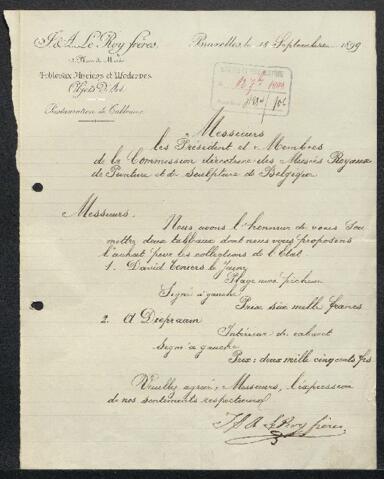 J. & A. Le Roy frères,
Place du Musée
Tableaux Anciens et Modernes
Objets d'Art
Restauration de Tableaux
Bruxelles, le 18 Septembre 1899
Messieurs
les Président et Membres
de la Commission directrice des Musées Royaux
de Peinture et de Sculpture de Belgique
Messieurs.
Nous avons l'honneur de vous sou
mettre deux tableaux dont nous vous proposons
l'achat pour les collections de l'Etat
1. David Teniers le jeune
Plage avec pêcheurs
Signé à gauche
Prix six mille francs
2. A Diepraam
Intérieur de cabaret
Signé à gauche
Prix: deux mille cinq cents frs
Veuillez agréer, Messieurs, l'expression
de nos sentiments respectueux
J & A Le Roy frères